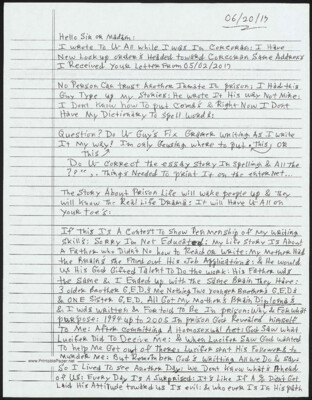 06/20/17
Hello Sir or Madam:
I wrote To Ur All while I was In Corcoran: I Have
Now Lock up orders Headed toward Corcoran Same Address
I Received Your Letter From 05/02/2017
No Person Can trust Another Inmate In prison; I Had this
Guy Type up My Stories: He wrote It His Way Not Mine.
I Dont Know how To put Comas & Right Now I Dont
Have My Dictionary To Spell words:
Question? Do Ur Guy's Fix Gramer Writing As I write
It My way? I'm only Guessing where to put , This, OR
This
Do Ur Correct the essay story In Spelling & All The
Things Needed To print It on the enternet...
The Story About Prison Life will wake people up & They
will Know The Real Life Drama: It will Have Ur All on
Your toe's:
If This Is A Contest To Show Penmenship of My writing
Skills: Sorry Im Not Educated: My Life Story Is About
A Father who Didn't No how to Read OR Write: My Mother Had
the Brains She Filled out His Job Applications: & He would
Us His God Gifted Talent To Do the work: His Father was
the Same & I Ended up with The Same Brain They Have:
3 older Brothers G.E.D.s Me Nothing Two Younger Brothers G.E.D.s
and ONE Sister G.E.D. All Got My Mothers Brain
& I was written & Foretold To Be In prison: Why, &
purpose: 1994 up to 2005 In prison God Revealed himself
To Me: After Committing A Homosexual Act: God Saw what
Lucifer Did To Decive Me: & When Lucifer Saw God wanted
to help Me Get out of There: Lucifer Sent His Followers to
Murder Me: But Remember God I Writing As We Do & Saw
So I Lived To See Another Day: We Dont Know what's Ahead
of US: Every Day Is A Surprised: It's Like If A & Dont Get
Laid His Attitude truked Us Is evil: & who ever Is In His path